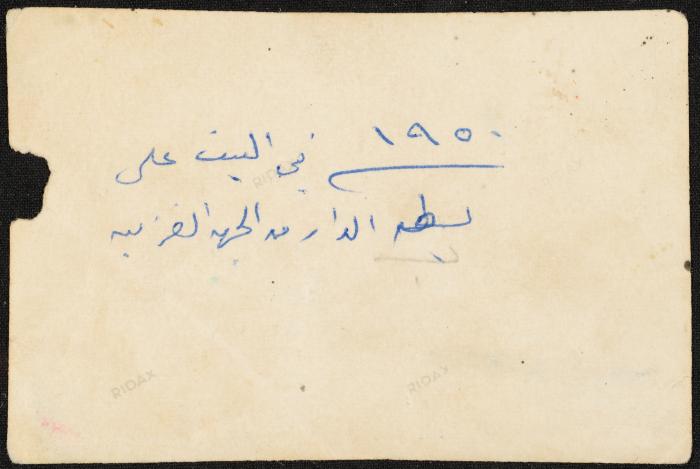 ١٩٥٠ في البيت على
سطح الدار من الجهه الغربيه
RIDAX
RIDAX
RIDAX